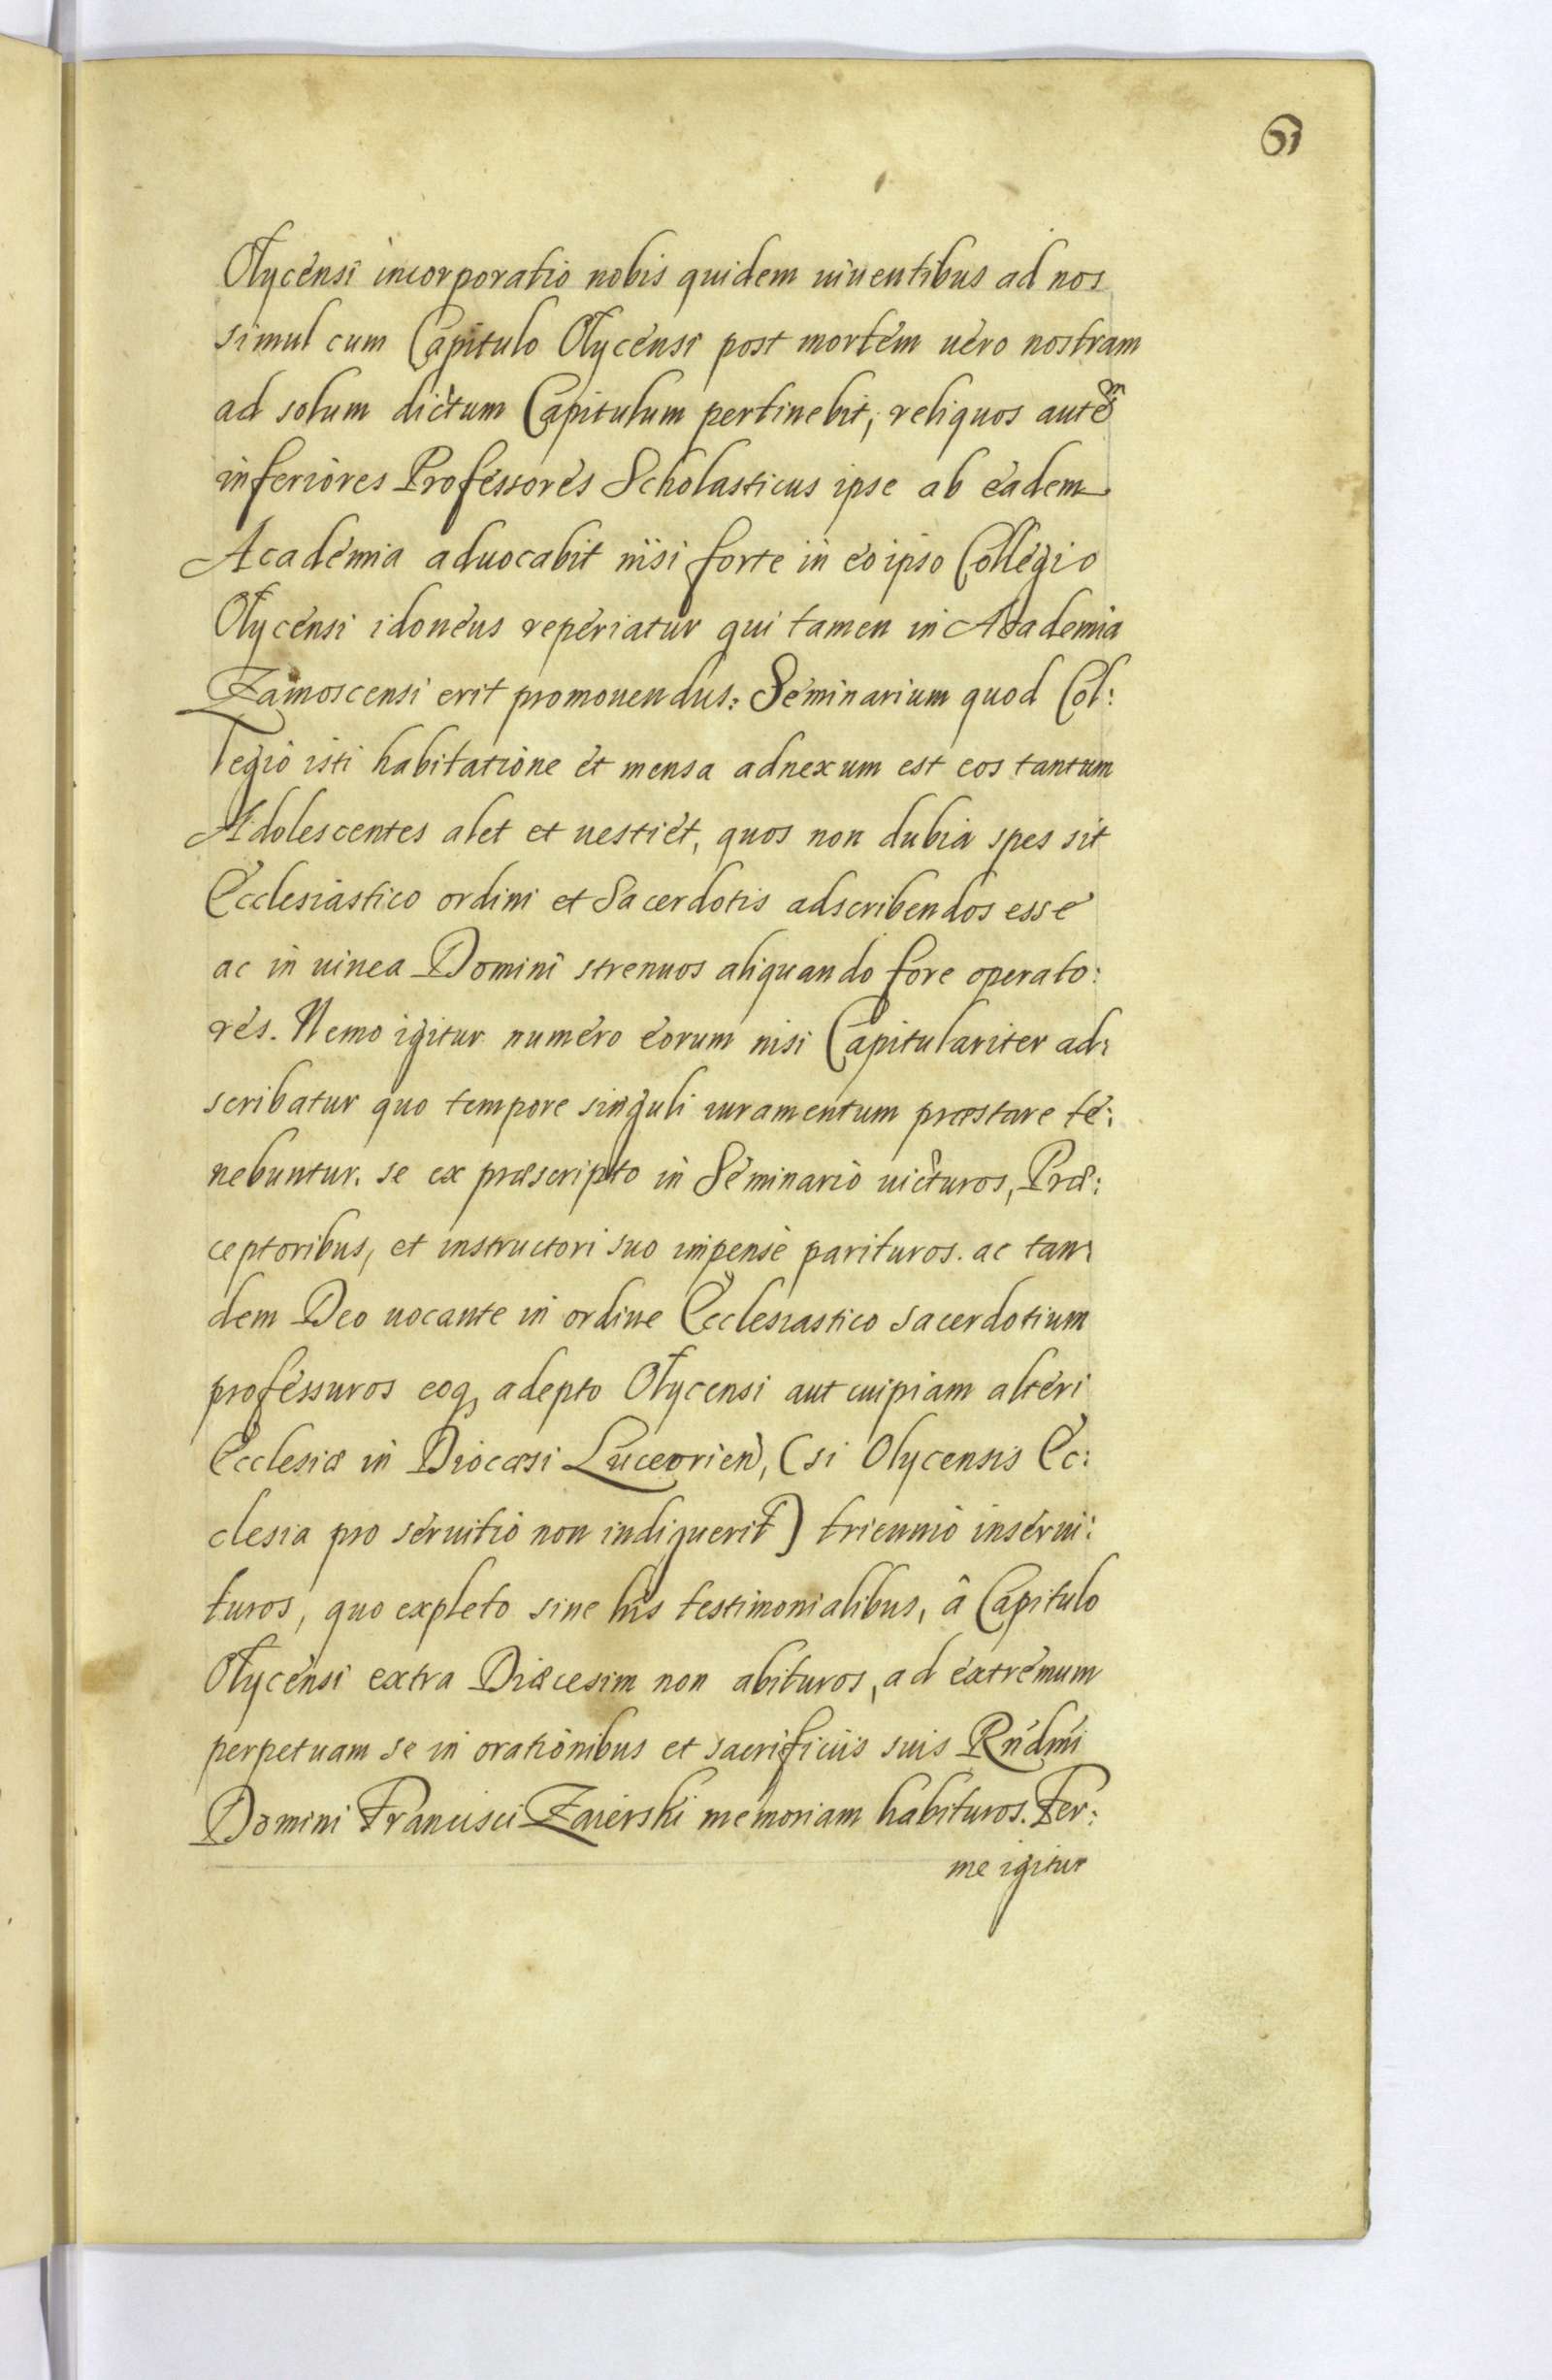 51
Olycensi incorporatio nobis quidem uiuentibus ad nos
simul cum Capitulo Olycensi post mortem uero nostram
ad solum dictum Capitulum pertinebit, reliquos autem
inferiores Professores Scholasticus ipse ab eadem
Academia aduocabit nisi forte in eo ipso Collegio
Olycensi idoneus reperiatur qui tamen in Academia
Zamoscensi erit promouendus: Seminarium quod Col:
legio isti habitatione et mensa adnexum est eos tantum
Adolescentes alet et uestiet, quos non dubia spes sit
Ecclesiastico ordini et Sacerdotis adscribendos esse
ac in uinea Domini strenuos aliquando fore operato:
res. Nemo igitur numero eorum nisi Capitulariter ad:
scribatur quo tempore singuli iuramentum præstare te:
nebuntur. se ex præscripto in Seminario uicturos, Præ:
ceptoribus, et instructori suo impensè parituros. ac tan:
dem Deo uocante in ordine Ecclesiastico sacerdotium
professuros eoq, adepto Olycensi aut cuipiam alteri
Ecclesiæ in Diocæsi Luceorien, (si Olycensis Ec:
clesia pro seruitio non indiguerit) triennio inserui:
turos, quo expleto sine his testimonialibus, â Capitulo
Olycensi extra Diæcesim non abituros, ad extremum
perpetuam se in orationibus et sacrificiis suis Rndmi
Domini Francisci Zaierski memoriam habituros. Fer:
me igitur